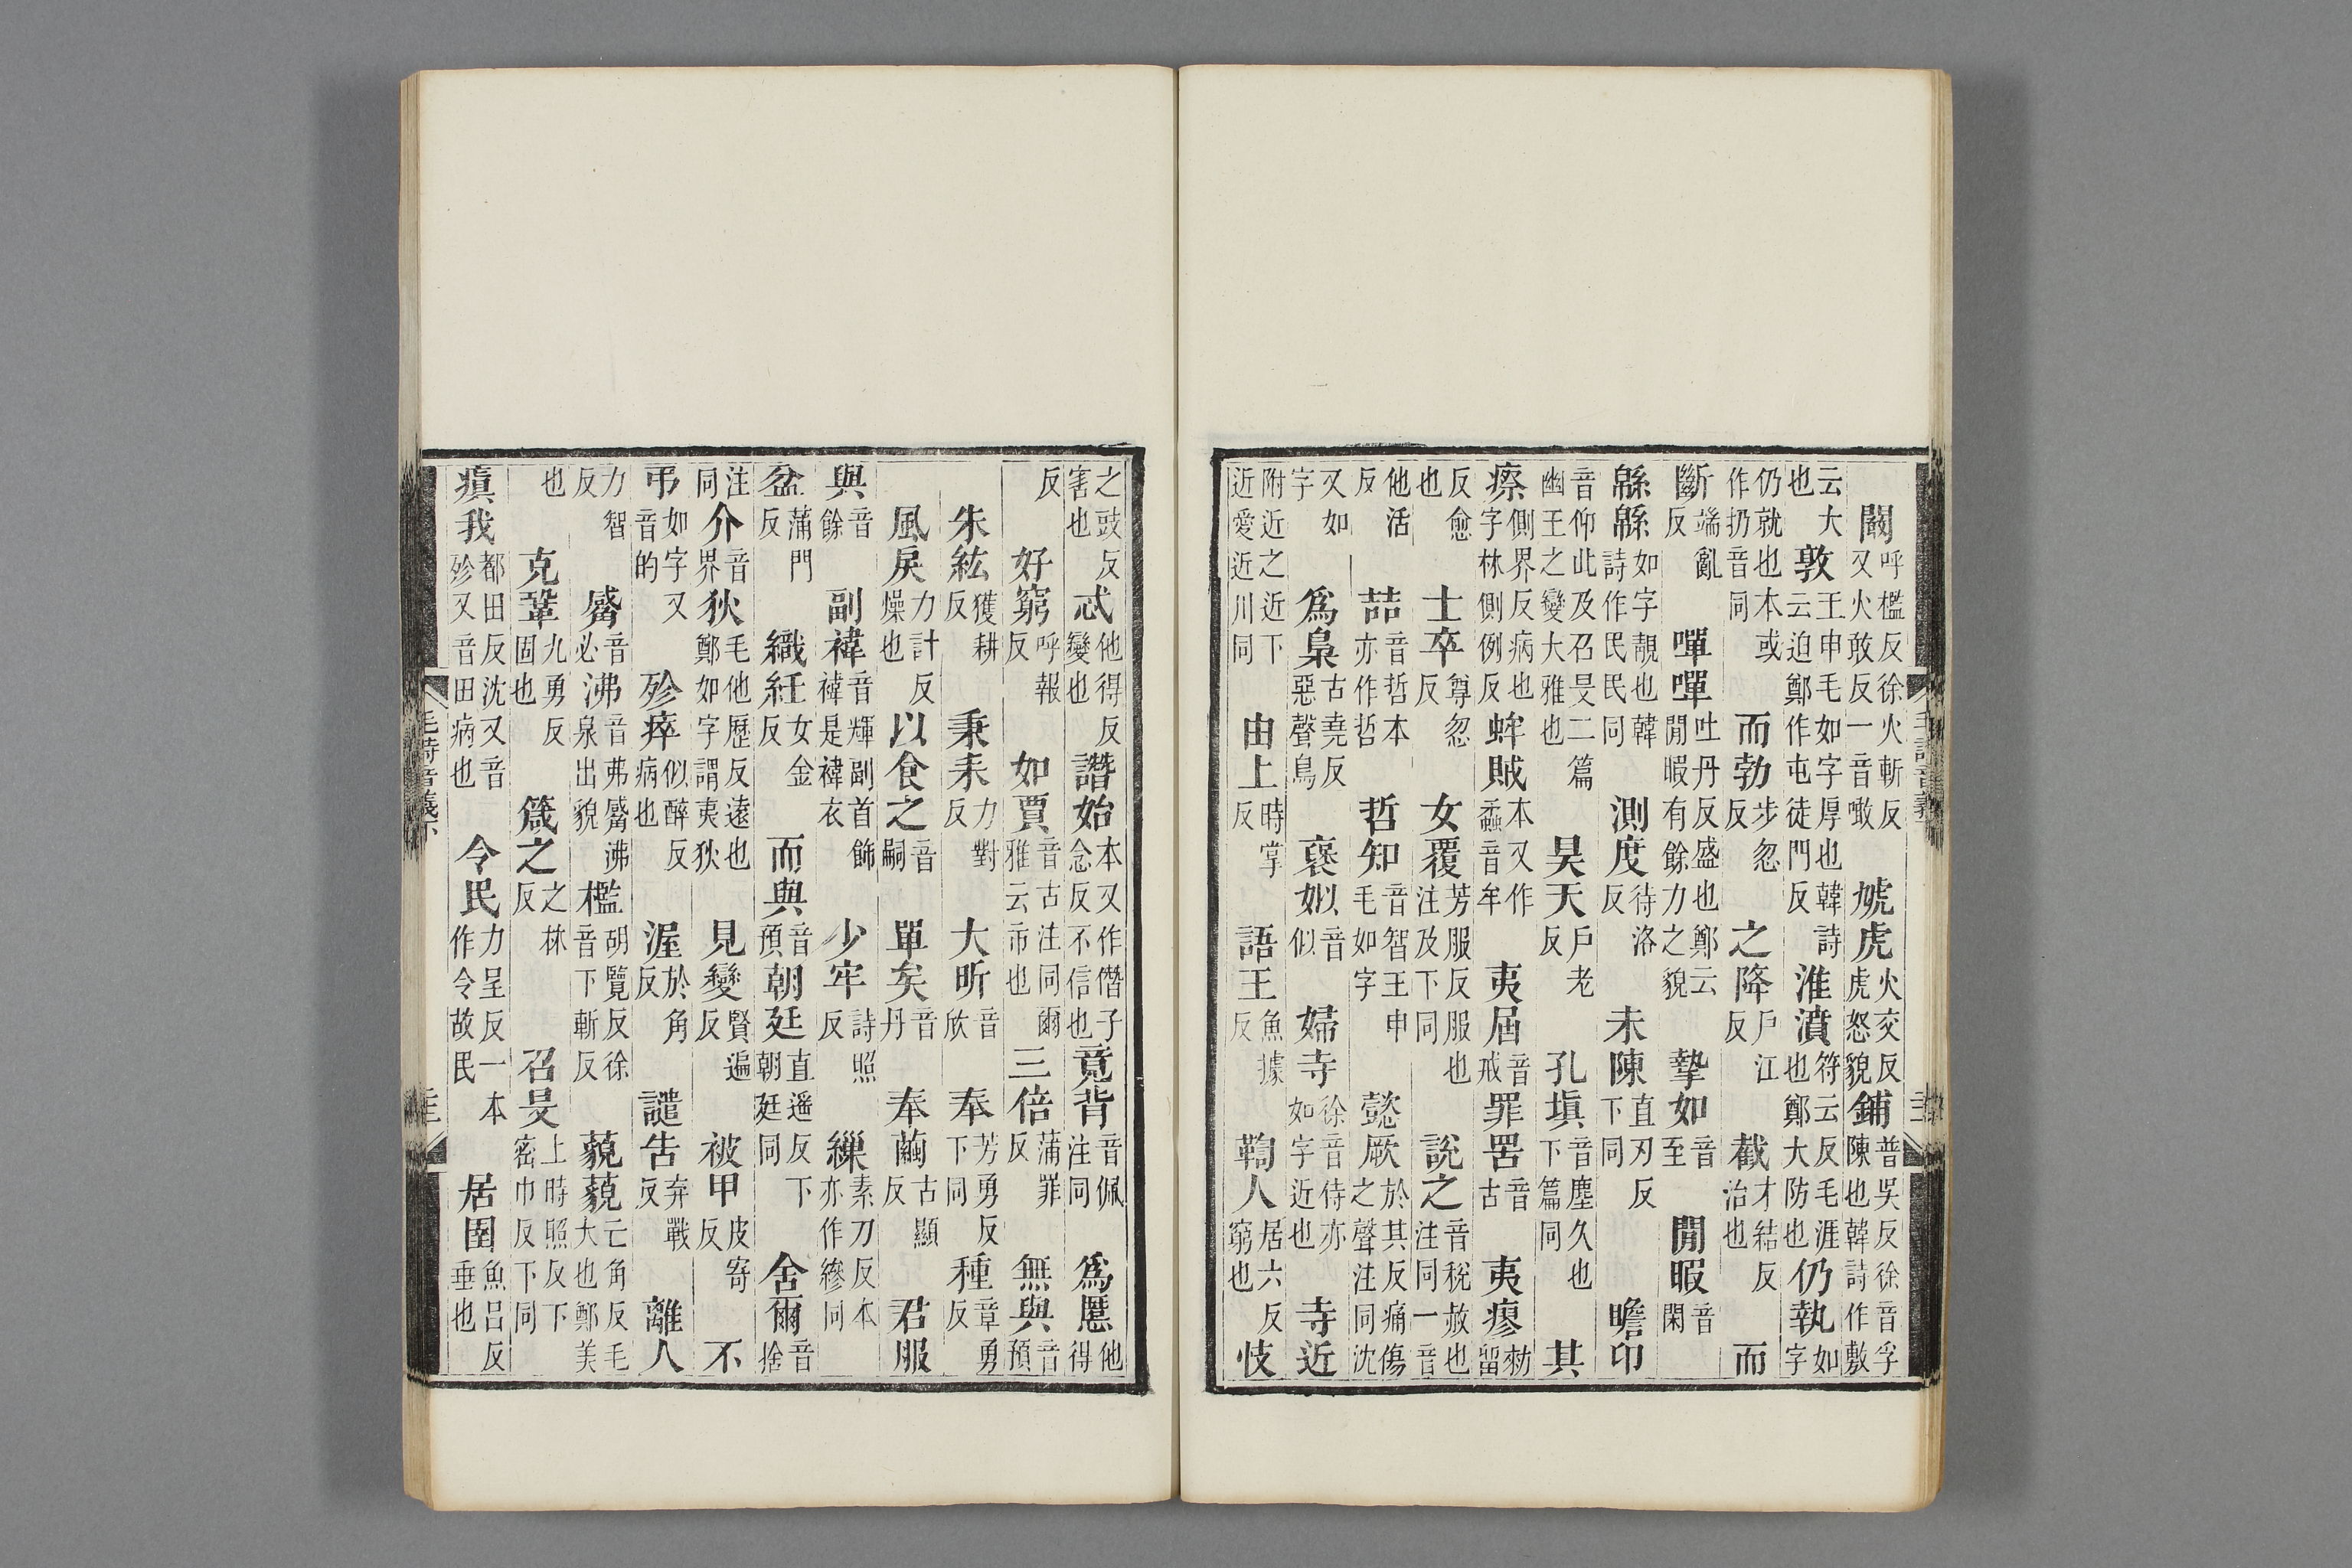 闞呼檻反徐火斬反又火敢反一音噉虓虎火交反虎怒貌鋪普吳反徐音孚陳也韓詩作敷
云大也敦王申毛如字厚也韓詩云迫鄭作屯徒門反淮濆符云反毛涯也鄭大防也仍執如字
仍就也本或作扔音同而勃步忽反之降戶江反截才結反治也而
斷端亂反嘽嘽吐丹反盛也鄭云閒暇有餘力之貌摯如音至閒暇音閑
緜緜如字靚也韓詩作民民同測度待洛反未陳直刃反下同瞻卬
音仰此及召旻二篇幽王之變大雅也昊天戶老反孔塡音塵久也下篇同其
瘵側界反病也字林側例反蛑賊本又作蟊音牟夷屆音戒罪罟音古夷瘳勑留
反愈也士卒尊忽反女覆芳服反服也注及下同說之音稅赦也注同一音
他活反喆音哲本亦作哲哲知音智王申毛如字懿厥於其反痛傷之聲注同沈
又如字爲梟古堯反惡聲鳥褒姒音似婦寺徐音侍亦如字近也寺近
附近之近下近愛近川同由上時掌反語王魚據反鞫人居六反窮也忮
之豉反害也忒他得反變也譖始本又作僭子念反不信也竟背音佩注同爲慝他得
反好窮呼報反如賈音古注同爾雅云市也三倍蒲罪反無與音預
朱紘獲耕反秉耒力對反大昕音欣奉芳勇反下同種章勇反
風戾力計反燥也以食之音嗣單矣音丹奉繭古顯反君服
與音餘副褘音輝副首飾褘是褘衣少牢詩照反繅素刀反本亦作繆同
盆蒲門反織紝女金反而與音預朝廷直遙反下朝廷同舍爾音捨
注同介音界狄毛他歷反遠也鄭如字謂夷狄見變賢遍反被甲皮寄反不
弔如字又音的殄瘁似醉反病也渥於角反譴告弃戰反離人
力智反觱音必沸音弗觱沸泉出貌檻胡覽反徐音下斬反藐藐亡角反毛大也鄭美
也克鞏九勇反固也箴之之林反召旻上時照反下密巾反下同
瘨我都田反沈又音殄又音田病也令民力呈反一本作令故民居圉魚呂反垂也